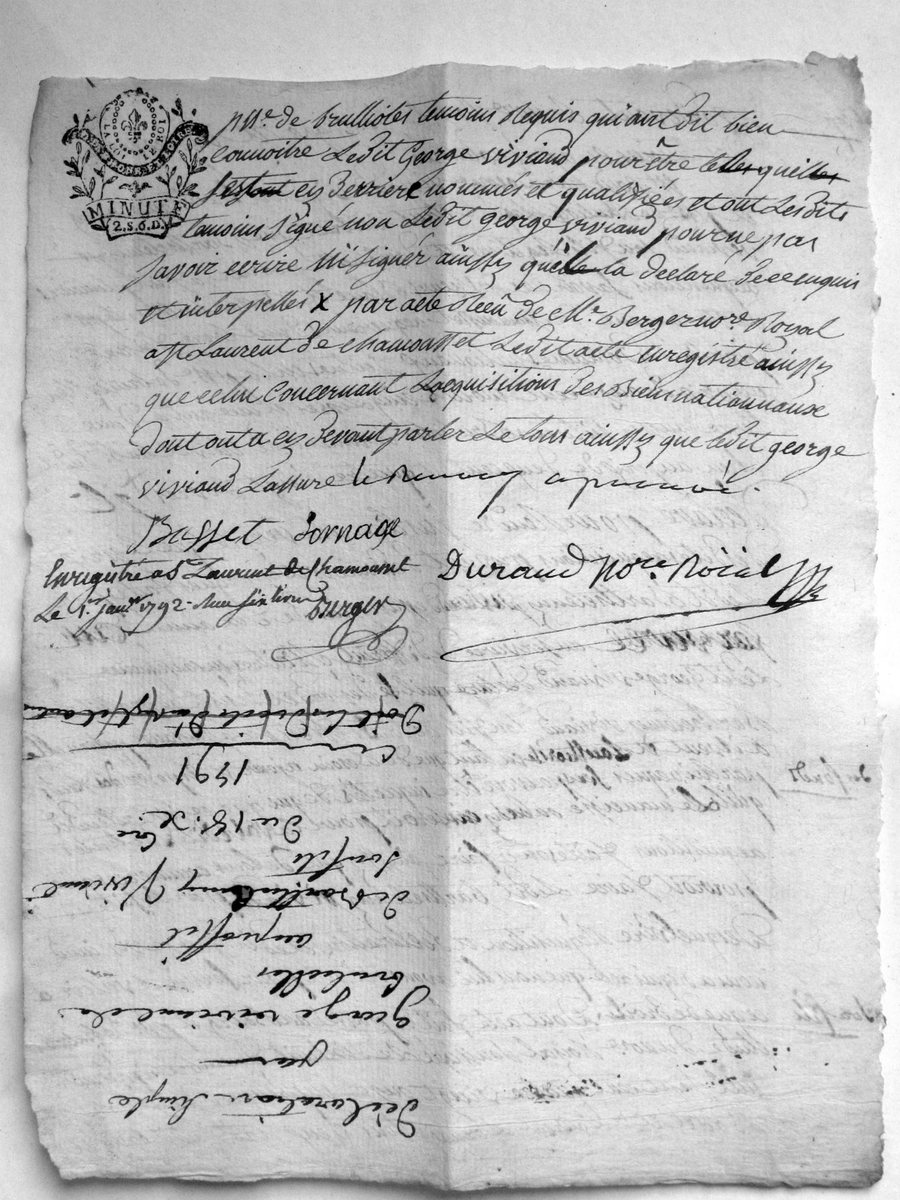 LA LOI LE ROI
DEP. RHONE ET LOIRE
MINUTE
2.S.6.D.
de brullioles temoins Requis qui ont dit bien
connoitre Ledit George viviand pour être
cy Derriere nommés et qualifiées et ont Lesdits
temoins signé non Ledit george viviand pour ne pas
savoir ecrire Ni signér ainssy la declaré de ce enquis
et interpellés x par acte Reçu de Mr. Berger nore. Royal
a St Laurent de chamousset Ledit acte Enregistré ainssy
que celui concernant Lacquisitions des Biens nationnaux
dont ont a cy devant parler Le tous ainssy que ledit george
viviand Lassure le Renvoy approuvé.
Basset Jornage
Enregistré a St Laurent de Chamousset
Durand Nore. Roial
Le 1er janv 1792
Berger
declaration simple
par
George viviand de
brulioles
au proffit
de Barthelemy Viviand
son fils
Du 18. Xbre
1791